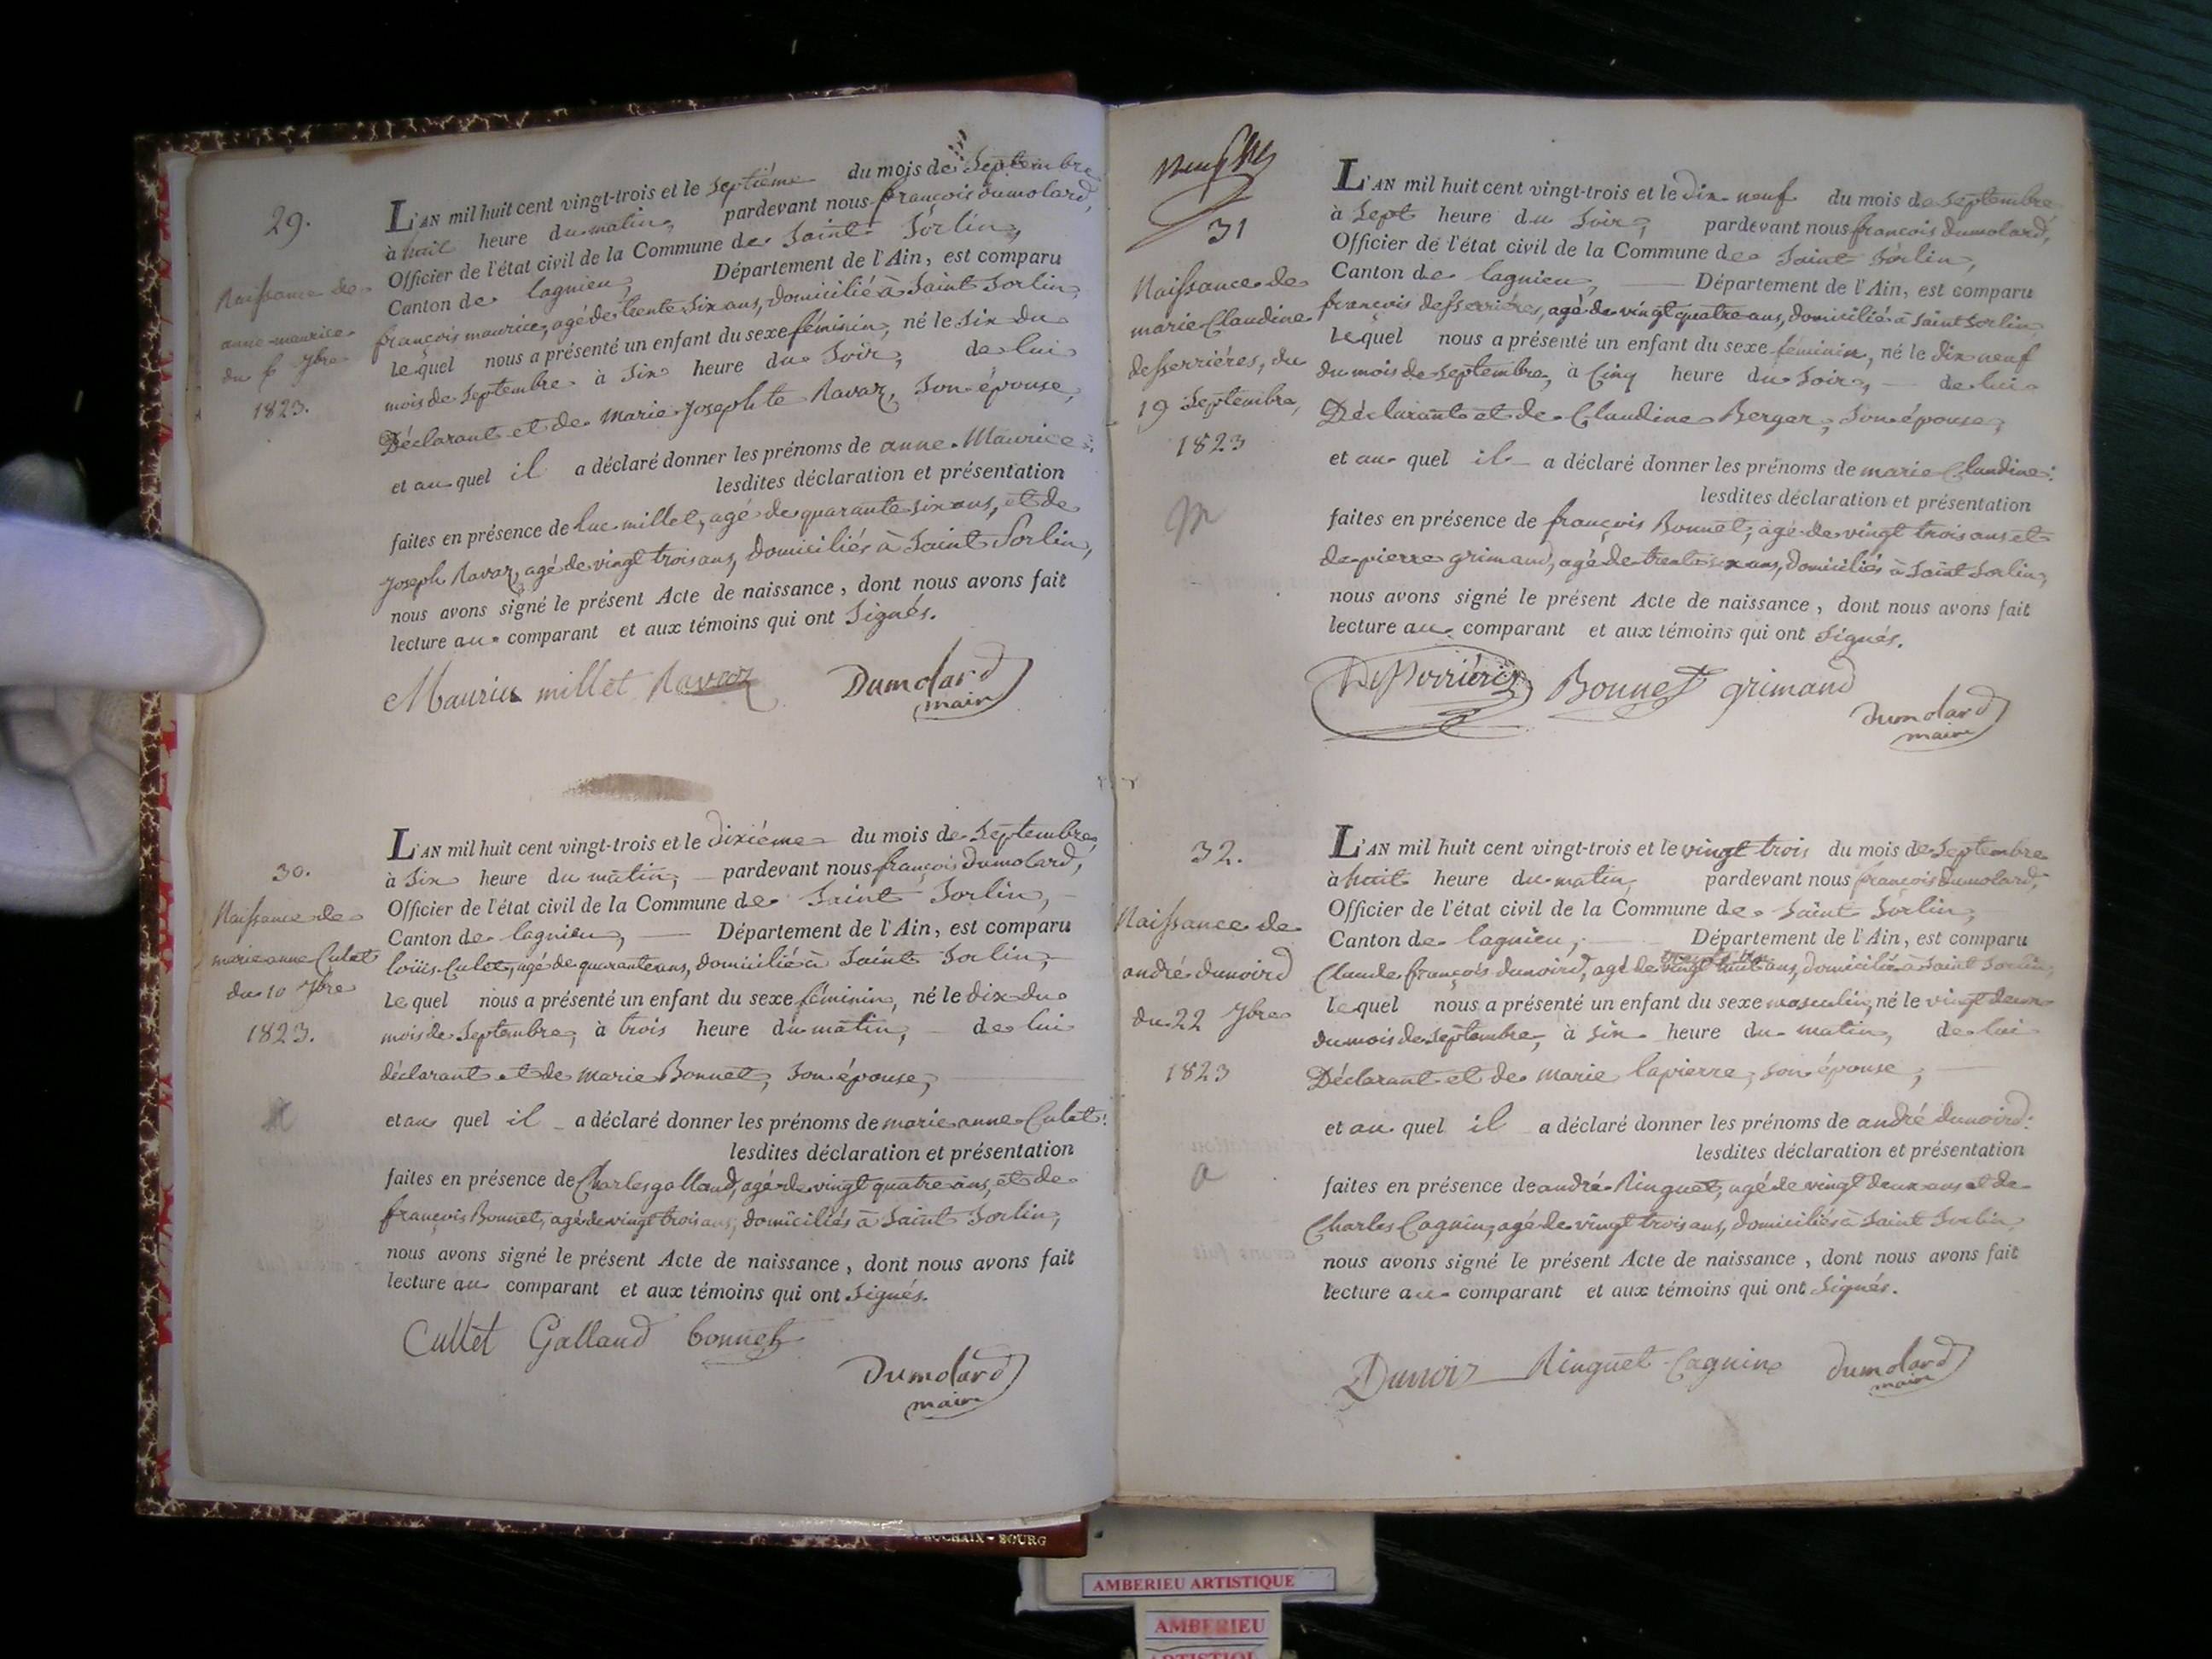 29.
Naissance de
anne maurice
du 6 7bre
1823.
L'AN mil huit cent vingt-trois et le septiéme du mois de Septembre
à huit heure du matin, pardevant nous françois dumolard,
Officier de l'état civil de la Commune de Saint Sorlin,
Canton de lagnieu, Département de l'Ain, est comparu
françois maurice, agé de trente six ans, domicilié à Saint Sorlin,
Lequel nous a présenté un enfant du sexe féminin, né le six du
mois de Septembre à six heure du Soir, de lui
Déclarant et de marie Josephte Ravaz, Son épouse,
et au quel il a déclaré donner les prénoms de anne Maurice:
lesdites déclaration et présentation
faites en présence de Luc millet, agé de quarante six ans, et de
Joseph Ravaz, agé de vingt trois ans, domiciliés à Saint Sorlin,
nous avons signé le présent Acte de naissance, dont nous avons fait
lecture au comparant et aux témoins qui ont Signés.
Maurice millet Ravaz Dumolard
maire
30.
Naissance de
marie anne Culet
du 10 7bre
1823.
L'AN mil huit cent vingt-trois et le dixiéme du mois de Septembre,
à Six heure du matin, pardevant nous françois Dumolard,
Officier de l'état civil de la Commune de Saint Sorlin,
Canton de lagnieu, Département de l'Ain, est comparu
loüis Culet, agé de quarante ans, domicilié à Saint Sorlin,
Lequel nous a présenté un enfant du sexe féminin, né le dix du
mois de Septembre, à trois heure du matin, de lui
déclarant et de marie Bonnet, Son épouse,
et au quel il a déclaré donner les prénoms de marie anne Culet:
lesdites déclaration et présentation
faites en présence de Charles galland, agé de vingt quatre ans, et de
françois Bonnet, agé de vingt trois ans, domiciliés à Saint Sorlin,
nous avons signé le présent Acte de naissance, dont nous avons fait
lecture au comparant et aux témoins qui ont Signés.
Cullet Galland bonnet
Dumolard
maire
31
Naissance de
marie Claudine
desserriéres, du
19 Septembre,
1823
m
L'AN mil huit cent vingt-trois et le Dix neuf du mois de Septembre
à Sept heure du Soir, pardevant nous françois dumolard,
Officier de l'état civil de la Commune de Saint Sorlin,
Canton de lagnieu, Département de l'Ain, est comparu
françois desserriéres, agé de vingt quatre ans, domicilié à Saint Sorlin
Lequel nous a présenté un enfant du sexe féminin, né le dix neuf
du mois de Septembre, à Cinq heure du Soir, de lui
Déclarant et de Claudine Berger, Son épouse,
et au quel il a déclaré donner les prénoms de marie Claudine:
lesdites déclaration et présentation
faites en présence de françois Bonnet, agé de vingt trois ans et
de pierre grimand, agé de trente six ans, domiciliés à Saint Sorlin,
nous avons signé le présent Acte de naissance, dont nous avons fait
lecture au comparant et aux témoins qui ont Signés.
Desserriéres Bonnet grimand
dumolard
maire
32.
Naissance de
andré dunoird
du 22 7bre
1823
a
L'AN mil huit cent vingt-trois et le vingt trois du mois de Septembre
à huit heure du matin, pardevant nous françois Dumolard,
Officier de l'état civil de la Commune de Saint Sorlin,
Canton de lagnieu, Département de l'Ain, est comparu
Claude françois dunoird, agé de vingt huit ans, domicilié à Saint Sorlin,
Lequel nous a présenté un enfant du sexe masculin, né le vingt deux
du mois de Septembre, à six heure du matin, de lui
Déclarant et de marie lapierre, son épouse,
et au quel il a déclaré donner les prénoms de andré dunoird:
lesdites déclaration et présentation
faites en présence de andré Ringuet, agé de vingt deux ans et de
Charles Cagnin, agé de vingt trois ans, domiciliés à Saint Sorlin,
nous avons signé le présent Acte de naissance, dont nous avons fait
lecture au comparant et aux témoins qui ont Signés.
Dunoir Ringuet Cagnin dumolard
maire
BOURG
AMBERIEU ARTISTIQUE
AMBERIEU
ARTISTIQUE